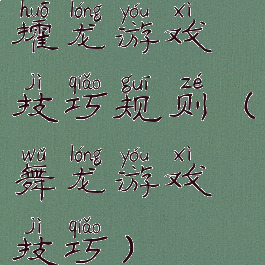 huō lóng yóu xì
攉龙游戏
jì qiǎo guī zé
技巧规则（
wǔ lóng yóu xì
舞龙游戏
jì qiǎo
技巧）